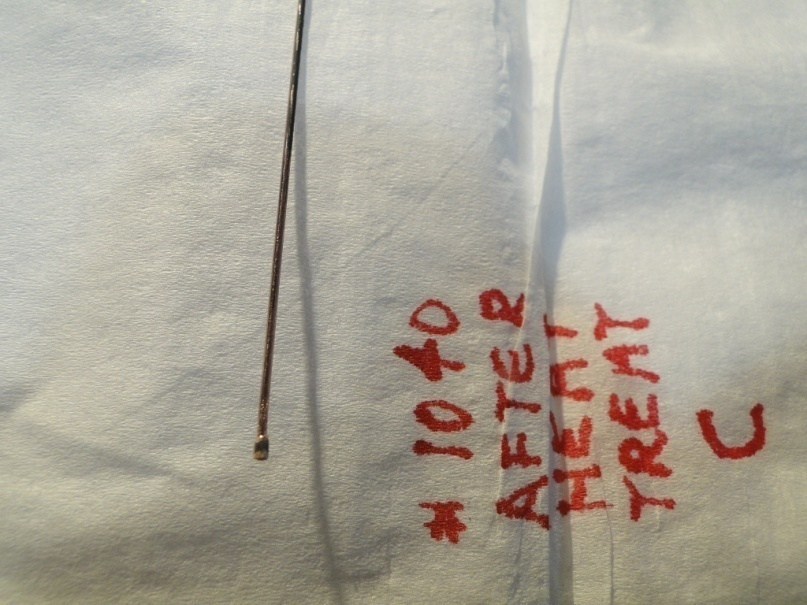 * 1040
AFTER
HEAT
TREAT
C